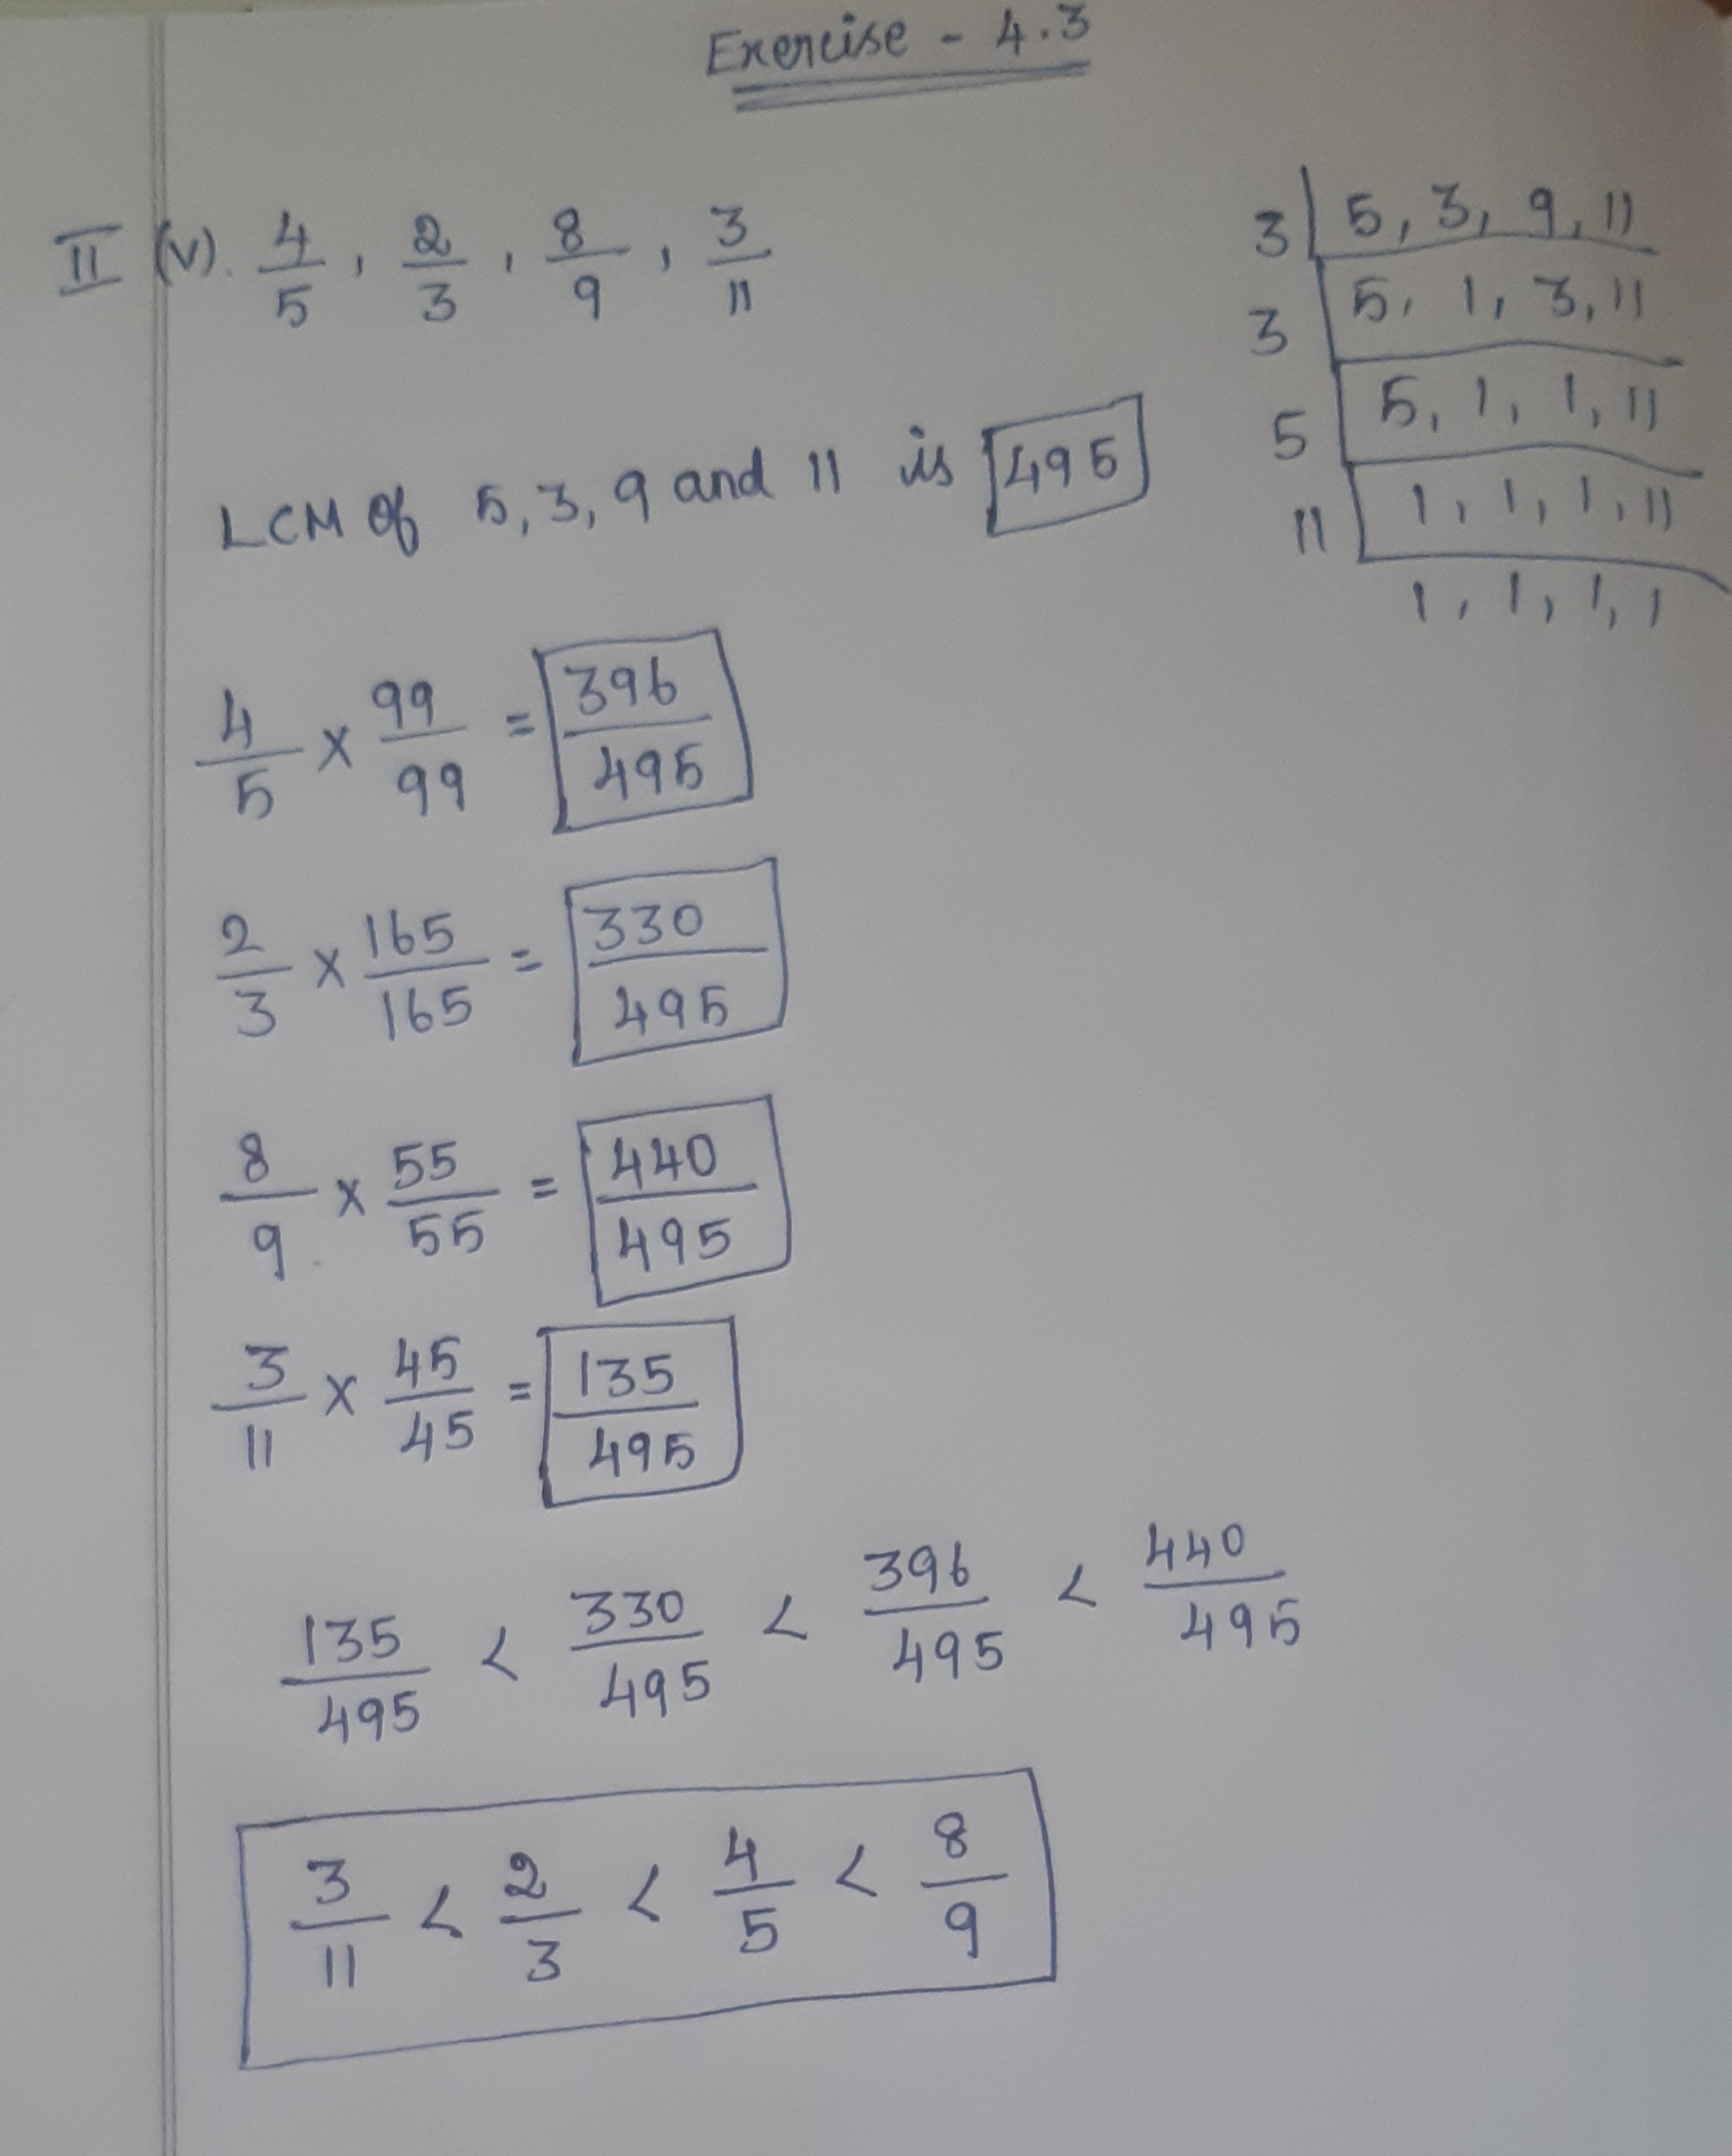 Exercise - 4.3
II (v). 4/5, 2/3, 8/9, 3/11
3 | 5, 3, 9, 11
3 | 5, 1, 3, 11
5 | 5, 1, 1, 11
11 | 1, 1, 1, 11
1, 1, 1, 1
LCM of 5, 3, 9 and 11 is 495
4/5 × 99/99 = 396/495
2/3 × 165/165 = 330/495
8/9 × 55/55 = 440/495
3/11 × 45/45 = 135/495
135/495 < 330/495 < 396/495 < 440/495
3/11 < 2/3 < 4/5 < 8/9